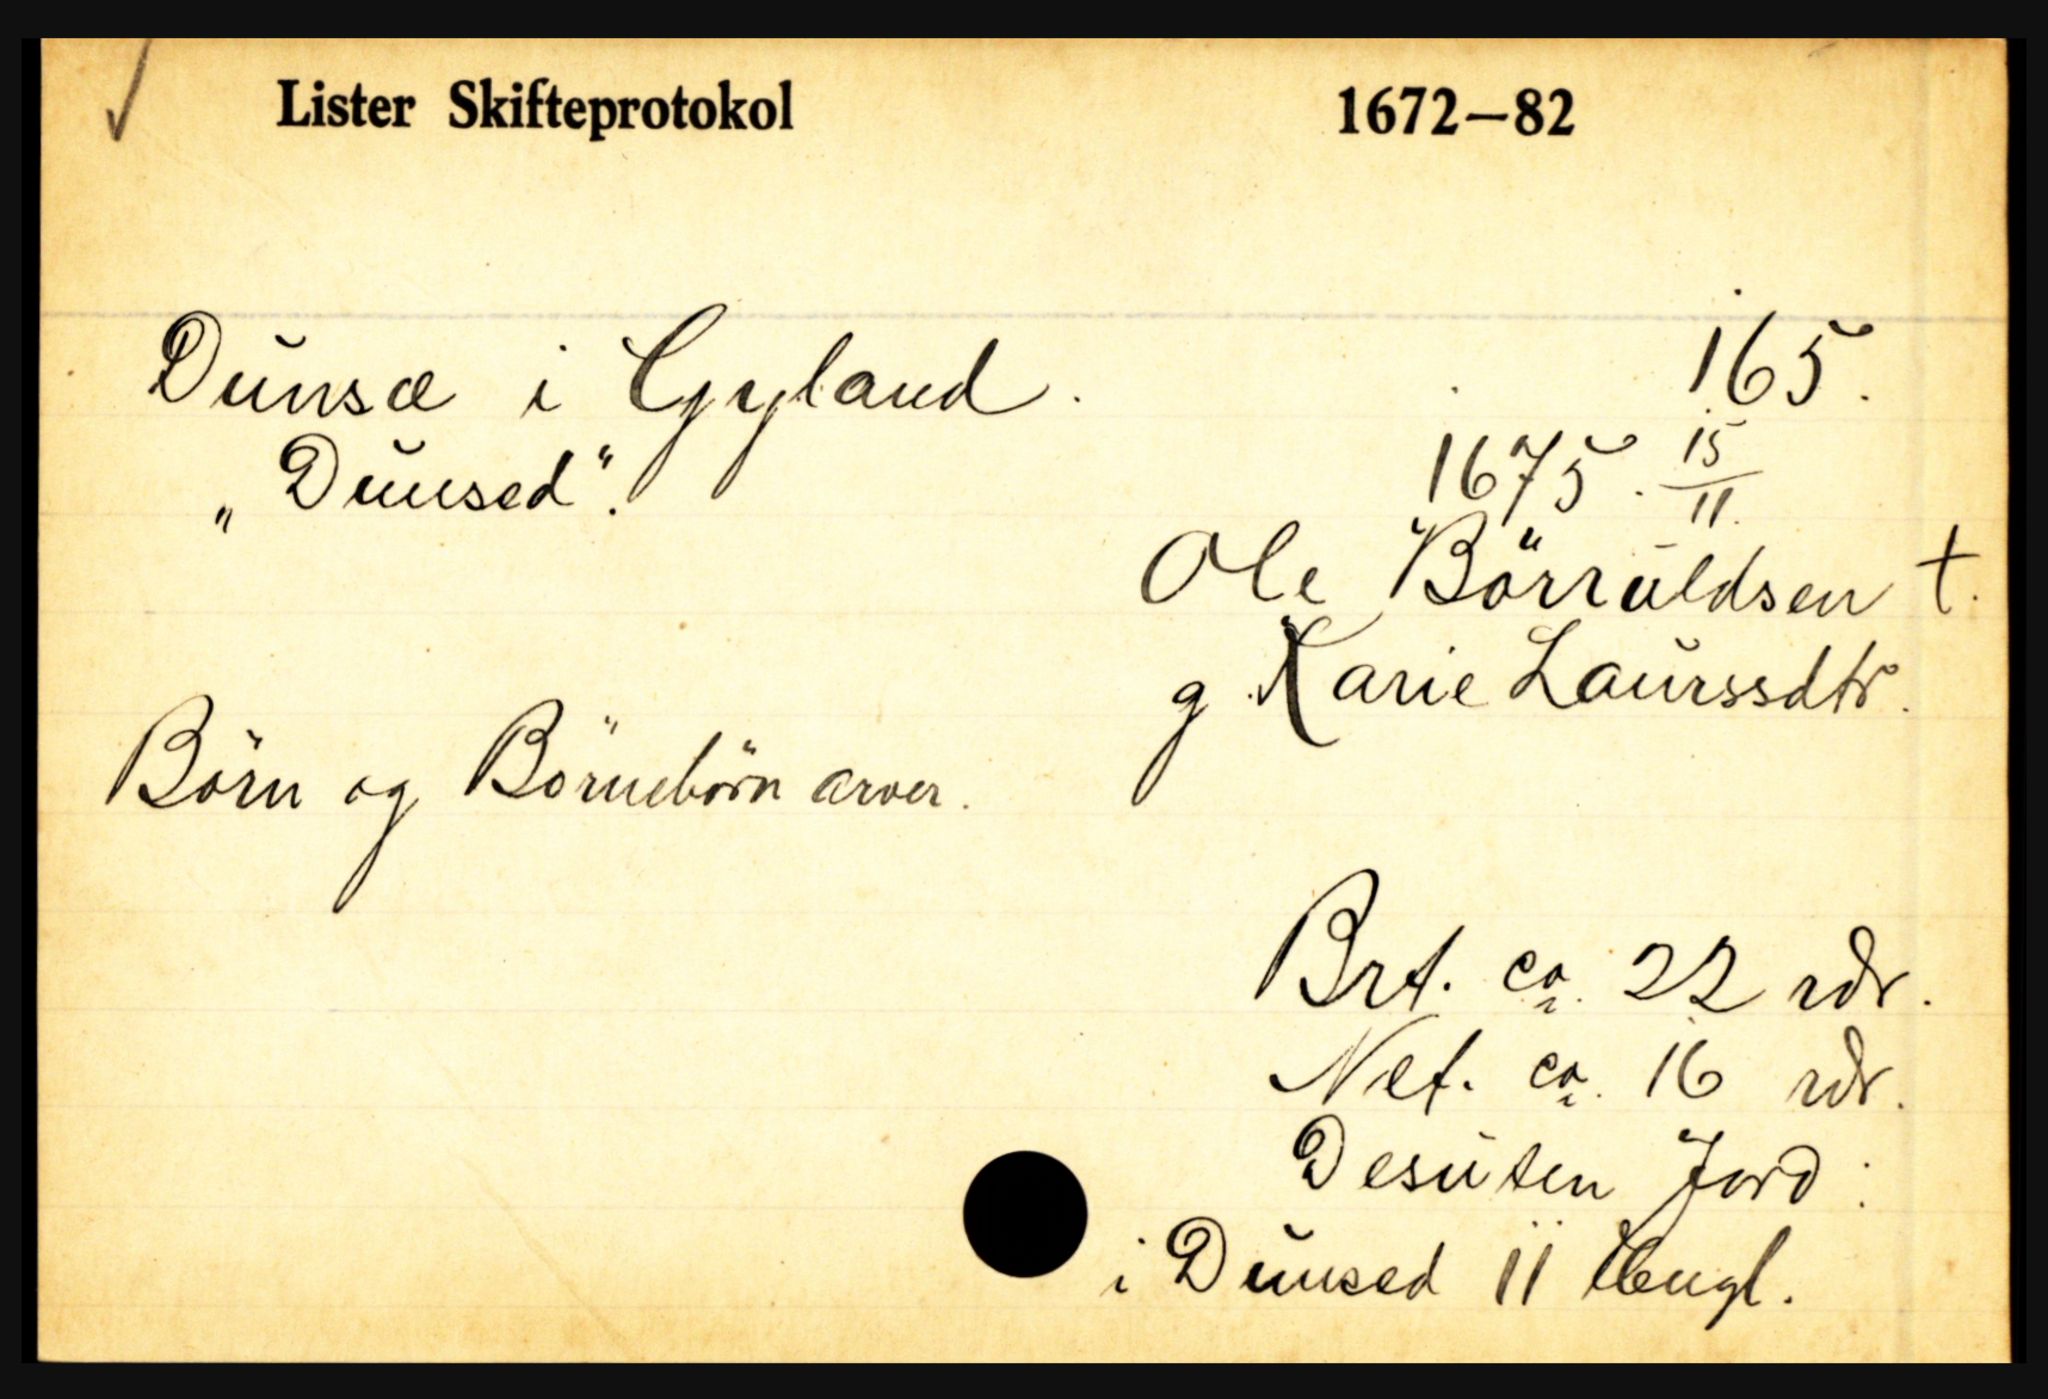 Lister Skifteprotokol 1672—82
Dunsæ i Gyland. 165.
„Dunsed“. 1675. 15/11.
Ole Börruldsen †.
g. Karie Laurssdtr.
Börn og Börnebörn arver.
Brt. ca. 22 rdr.
Net. ca. 16 rdr.
Desuten Jord:
i Dunsed 11 Engl.